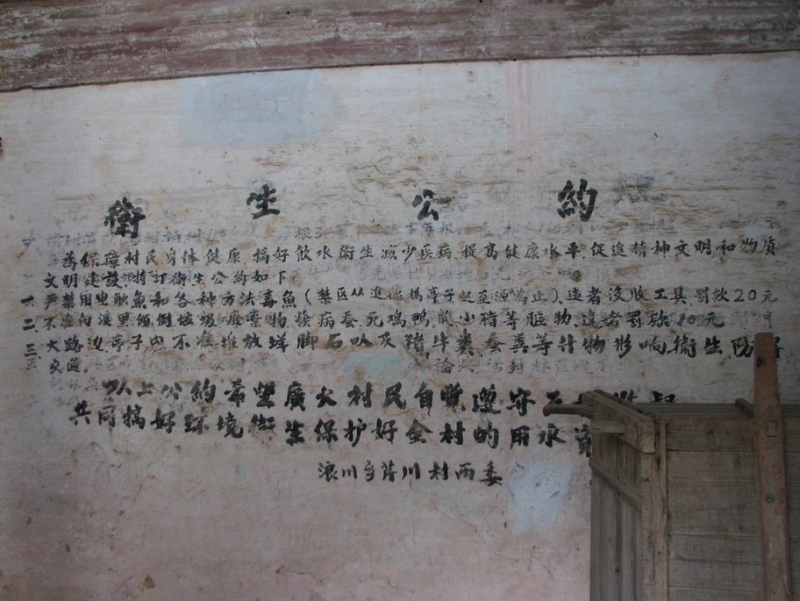 衛生公約
為保障村民身体健康,搞好飲水衛生,减少疾病,提高健康水平,促進精神文明和物质
文明建設,特訂衛生公約如下
一、严禁用电触魚和各种方法毒魚(禁区从進 橋亭子起至源 为止),违者没收工具罰欵20元
二、不准向溪里倾倒垃圾廢 物,發病 死鸡鸭鼠小猪等脏物,違者罰欵10元
三、大路边亭子内不准堆放 脚石以及猪牛粪 粪等什物影响衛生防
交通
以上公約希望廣大村民自覺遵守
共同搞好环境衛生保护好全村的用水
浪川乡芹川村两委